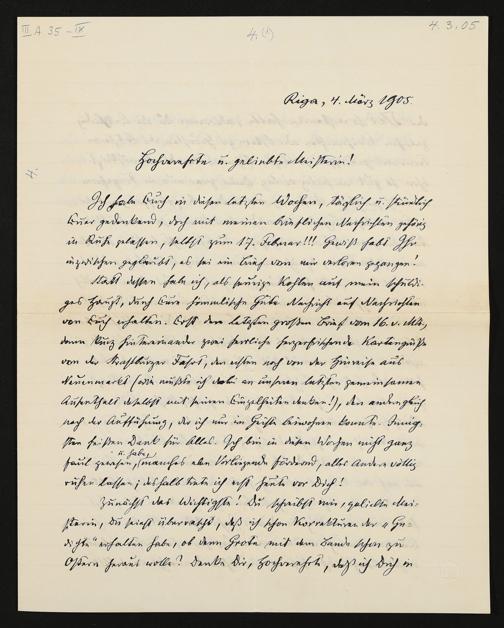 III A 35 – IX
4. (1)
4.3.05
Riga, 4. März 1905.
Hochverehrte u. geliebte Meisterin!
4.
Ich habe Euch in diesen letzten Wochen, täglich u. stündlich
Euer gedenkend, doch mit meinen brieflichen Nachrichten gehörig
in Ruhe gelassen, selbst zum 17. Februar!!! Gewiß habt Ihr
inzwischen geglaubt, es sei ein Brief von mir verloren gegangen!
Statt dessen habe ich, als feurige Kohlen auf mein schuldi-
ges Haupt, durch Eure himmlische Güte Nachricht auf Nachrichten
von Euch erhalten. Erst den letzten großen Brief vom 16. v. Mts.,
dann kurz hintereinander zwei herrliche herzerfrischende Kartengrüße
von der Straßburger Fahrt, den ersten noch von der Hinreise aus
Neuenmarkt (wie mußte ich dabei an unseren letzten gemeinsamen
Aufenthalt daselbst mit seinen Einzelheiten denken!), den anderen gleich
nach der Aufführung, der ich nur im Geiste beiwohnen konnte. Innig-
sten heißen Dank für Alles. Ich bin in diesen Wochen nicht ganz
faul gewesen, u. habe manches eben Vorliegende fördernd, alles Andere völlig
ruhen lassen; deshalb trete ich erst heute vor Dich!
Zunächst das Wichtigste! Du schreibst mir, geliebte Mei-
sterin, Du seiest überrascht, daß ich schon Korrekturen der „Ge-
dichte" erhalten habe, ob denn Grote mit dem Bande schon zu
Ostern heraus wolle? Denke Dir, Hochverehrte, daß ich Dich in